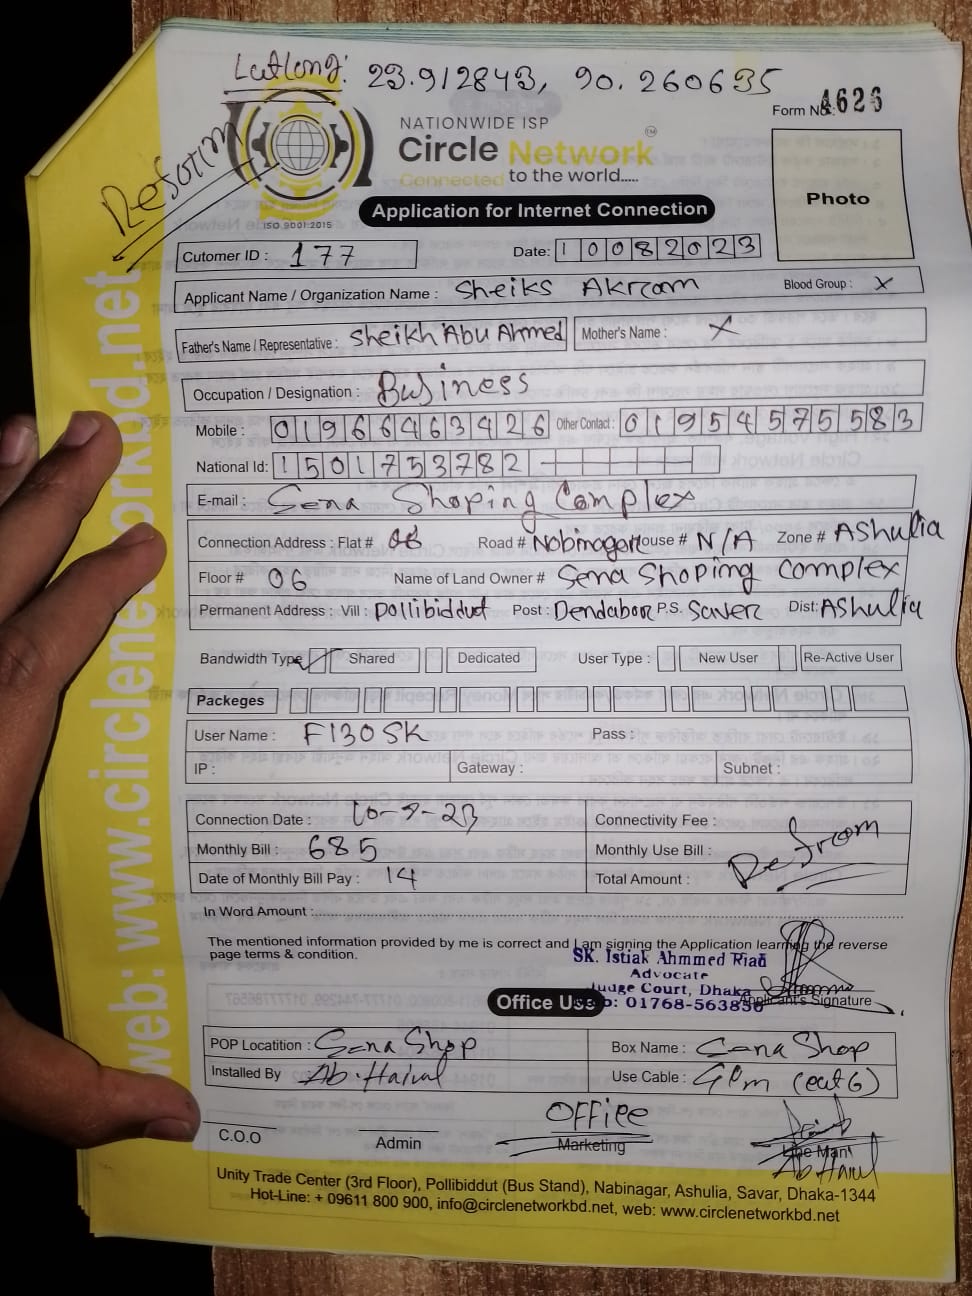 Latlong: 23.912843, 90.260635
Form No: 4626
NATIONWIDE ISP
Circle Network TM
Connected to the world.....
ISO 9001:2015
Application for Internet Connection
Photo
Cutomer ID : 177 Date: 10082023
Applicant Name / Organization Name : Sheiks Akram Blood Group : X
Father's Name / Representative : Sheikh Abu Ahmed Mother's Name : X
Occupation / Designation : Business
Mobile : 01966463426 Other Contact : 01954575583
National Id: 1501753782
E-mail : Sena Shoping Complex
Connection Address : Flat # Road # Nobinagar House # N/A Zone # Ashulia
Floor # 06 Name of Land Owner # Sena Shoping Complex
Permanent Address : Vill : Pollibiddut Post : Dendabor P.S. Saver Dist: Ashulia
Bandwidth Type Shared Dedicated User Type : New User Re-Active User
Packeges
User Name : F130SK Pass :
IP : Gateway : Subnet :
Connection Date : Connectivity Fee :
Monthly Bill : 685 Monthly Use Bill :
Date of Monthly Bill Pay : 14 Total Amount :
In Word Amount :
The mentioned information provided by me is correct and I am signing the Application learning the reverse
page terms & condition.
SK. Istiak Ahmmed Riad
Advocate
Judge Court, Dhaka
Mob: 01768-563836
Applicant's Signature
Office Use
POP Locatition : Sena Shop Box Name : Sena Shop
Installed By Use Cable : (cat 6)
OFFICE
C.O.O Admin Marketing Line Man
Unity Trade Center (3rd Floor), Pollibiddut (Bus Stand), Nabinagar, Ashulia, Savar, Dhaka-1344
Hot-Line: + 09611 800 900, info@circlenetworkbd.net, web: www.circlenetworkbd.net
web: www.circlenetworkbd.net